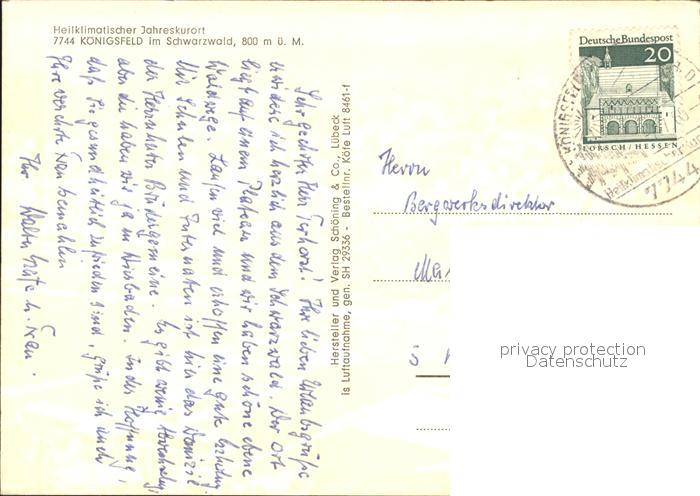 Heilklimatischer Jahreskurort
7744 KÖNIGSFELD im Schwarzwald, 800 m ü. M.
Sehr geehrter Herr Terhorst! Ihre lieben Urlaubsgrüße
erwidere ich herzlich aus dem Schwarzwald. Der Ort
liegt auf einem Plateau und wir haben schöne ebene
Waldwege. Laufen viel und erhoffen eine gute Erholung.
Mit Schulen und Internaten ist hier das Domizil
der Herrnhuter Brüdergemeine. Es gibt wenig
aber die haben wir ja in Wiesbaden. In der Hoffnung,
daß Sie gesundheitlich zufrieden sind, grüße ich auch
Ihre verehrte Frau Gemahlin
Ihr Walter u. Frau.
Hersteller und Verlag Schöning & Co., Lübeck
is Luftaufnahme, gen. SH 29336 - Bestellnr. Köfe Luft 8461-f
Deutsche Bundespost
20
LORSCH/HESSEN
KÖNIGSFELD
7744
Herrn
Bergwerksdirektor
privacy protection
Datenschutz